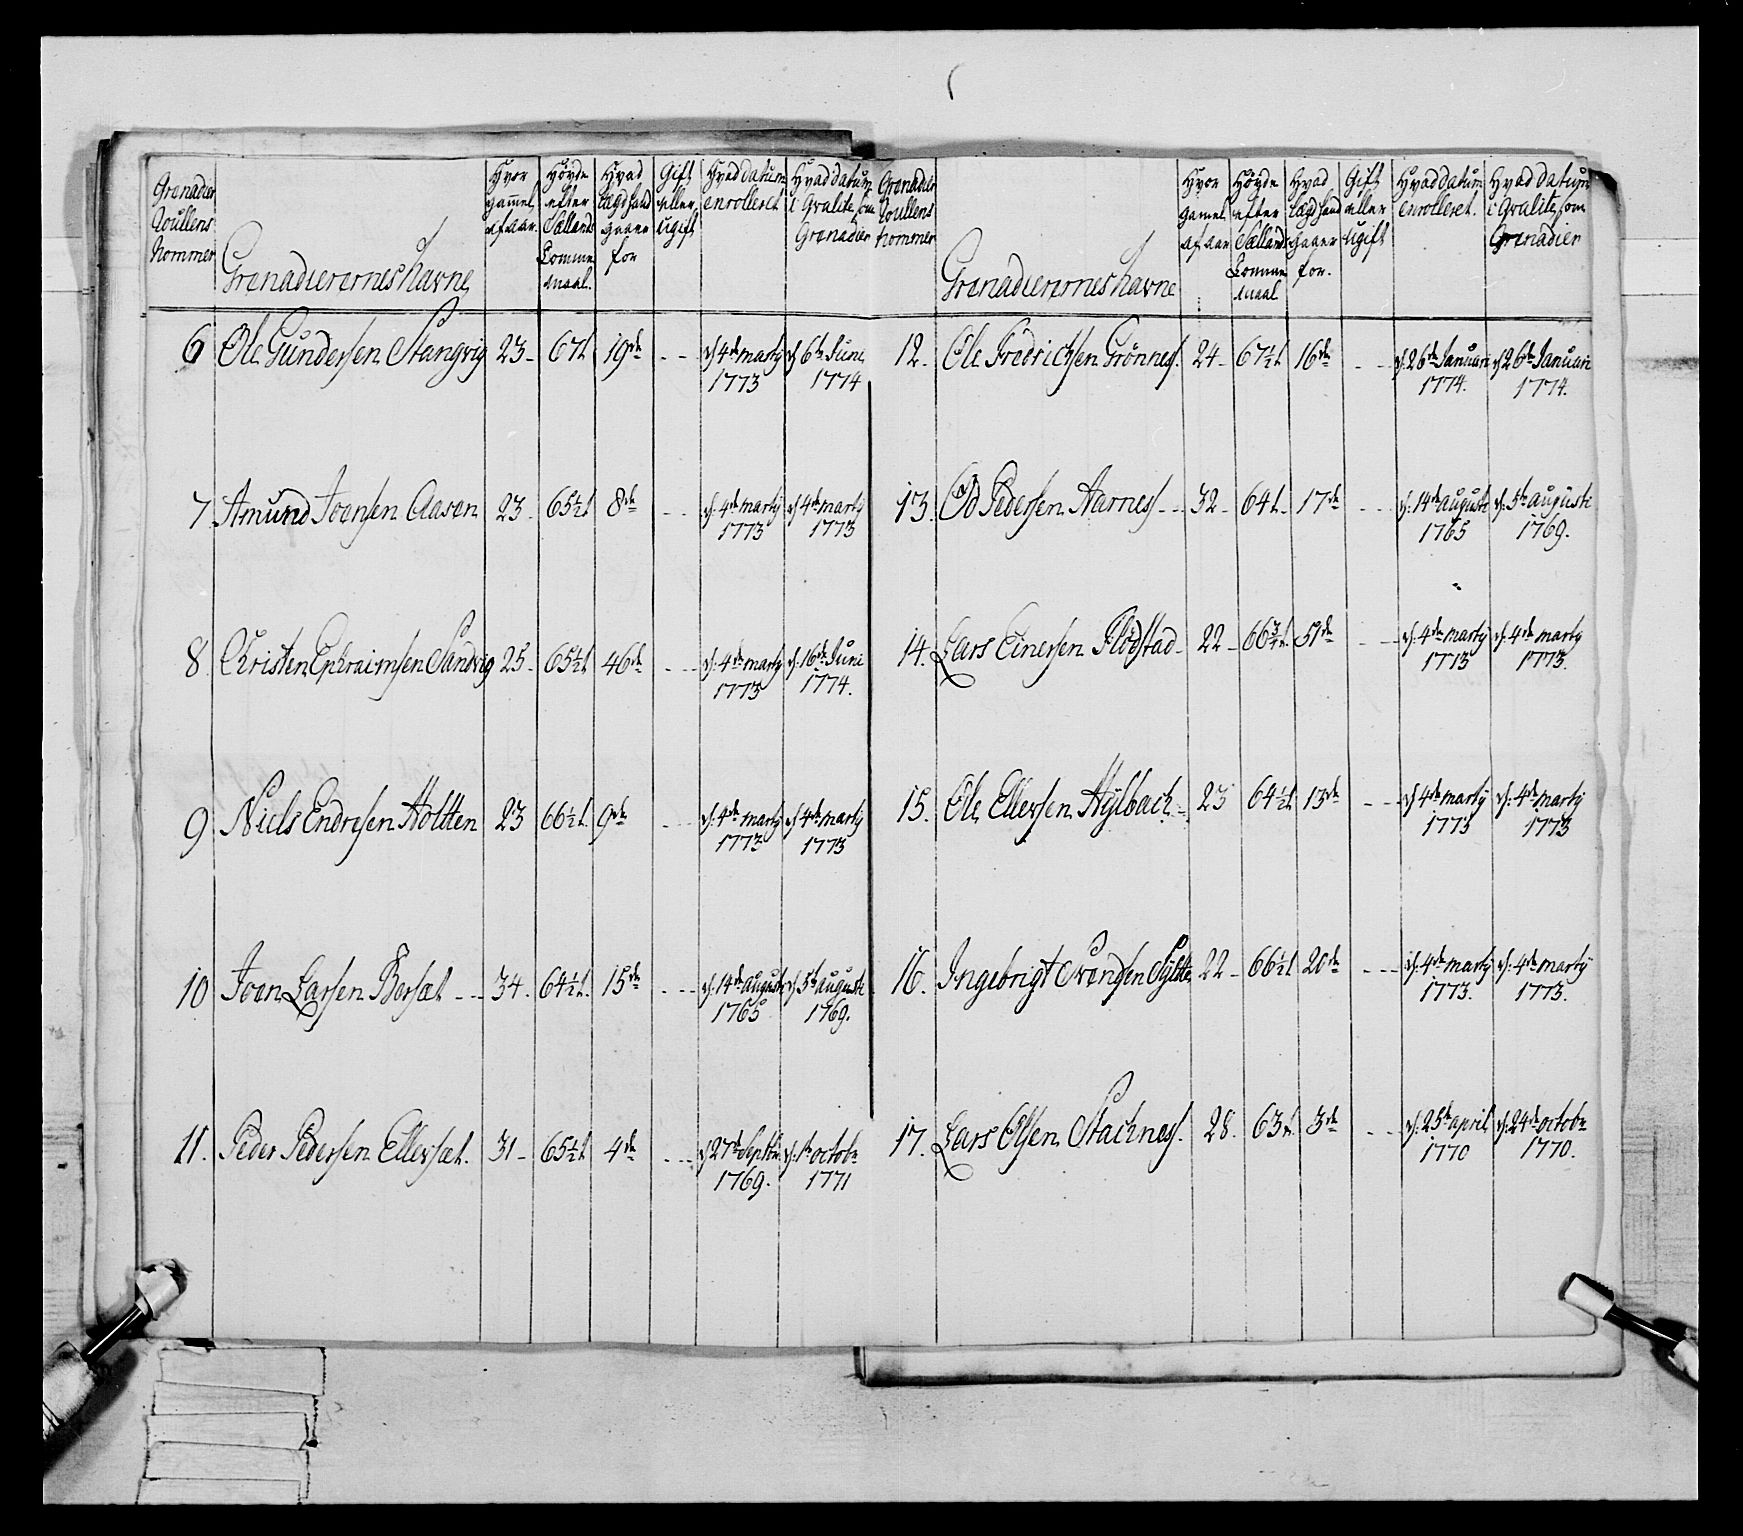 Grenadier Roullens Nommer
Grenadierernes Navne
Hvor gammel af aar.
Høyde efter Siællands Tomme maal.
Hvad Lægd hand staaer for
Gift eller Ugift
Hvad datum enrolleret
Hvad datum i Qvalite som Grenadier
6 Ole Gundersen Stangvig 23 - 67 t. 19de - - d. 4de marty 1773 d. 6te Juni 1774
7 Amund Joensen Aasen 23 - 65½ t 8de - - d. 4de marty 1773 d. 4de marty 1773
8 Christen Ephraimsen Sandvig 25 - 65½ t 46de - - d. 4de marty 1773 d. 16de Juni 1774.
9 Niels Endresen Holtten 23 66½ t. 9de - - d. 4de marty 1773 d. 4de marty 1773
10 Joen Larsen Bersæt - - 34. 64½ t. 15de - - d. 14de augusti 1765 d. 5te augusti 1769.
11. Peder Pedersen Ellersæt. 31 - 65½ t 4de - - d. 27de Septbr. 1769. d. 1te octobr 1771
Grenadier Roullens Nommer
Grenadierernes Navne
Hvor gamel af aar
Høyde efter Siællands Tomme maal
Hvad Lægd hand staaer for.
Gift eller Ugift
Hvad datum enrolleret.
Hvad datum i Qvalite som Grenadier
12. Ole Fredrichsen Grønnes. 24 - 67½ t 16de - - d. 26de Januari 1774. d. 26de Januari 1774.
13. Od Pedersen Aarnes - - 32 - 64 t. 17de - - d. 14de augusti 1765 d. 5te augusti 1769.
14. Lars Einersen Flodstad - 22 - 66¾ t. 51de - - d. 4de marty 1773 d. 4de marty 1773.
15. Ole Ellersen Hylbach - 23 64½ t. 13de - - d. 4de marty 1773 d. 4de marty 1773
16. Ingebrigt Svendsen Sylte 22 - 66½ t 20de - - d. 4de marty 1773. d. 4de marty 1773.
17. Lars Olsen Stachnes. 28. 63 t. 3de - - d. 25de april 1770 d. 24de octobr 1770.